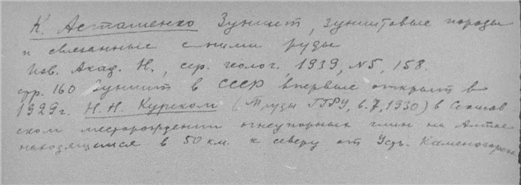 К. Асташенко Зуниит, зунитовые породы
и связанные с ними руды
Изв. Акад. Н., сер. геолог. 1939, №5, 158.
стр. 160 Зуниит в СССР впервые открыт в
1929г. Н. Н. Курском (Труды ГГРУ, 6.7, 1930) в
ском месторождении огнеупорных глин на Алтае
находящимся в 50 км. к северу от Усть Каменогорска